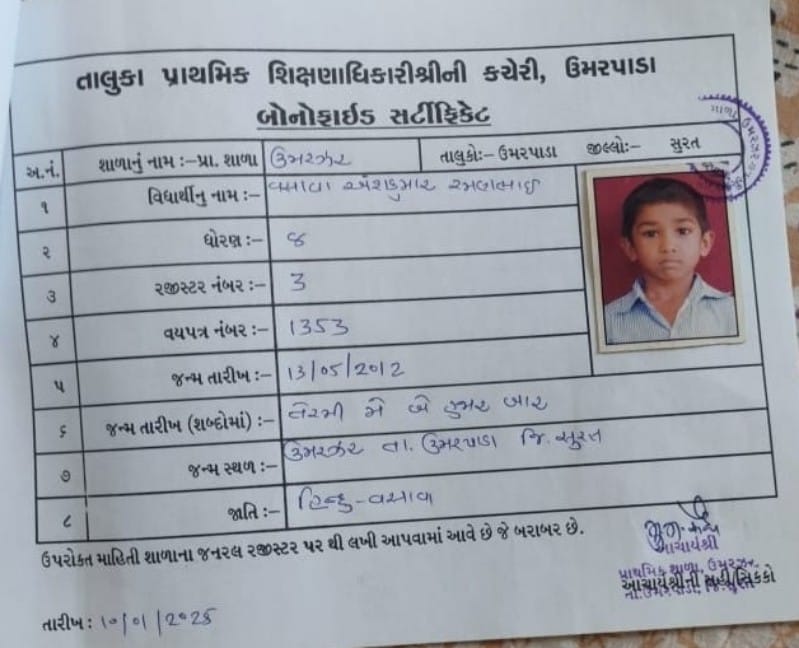 તાલુકા પ્રાથમિક શિક્ષણાધિકારીશ્રીની કચેરી, ઉમરપાડા
બોનોફાઇડ સર્ટીફિકેટ
અ.નં. શાળાનું નામ :–પ્રા. શાળા ઉમરઝર તાલુકો:– ઉમરપાડા જીલ્લો:– સુરત
૧ વિદ્યાર્થીનુ નામ :– વસાવા
૨ ધોરણ :– ૪
૩ રજીસ્ટર નંબર :– 3
૪ વયપત્ર નંબર :– 1353
૫ જન્મ તારીખ :– 13/05/2012
૬ જન્મ તારીખ (શબ્દોમાં) :– તેરમી મે બે હજાર બાર
૭ જન્મ સ્થળ :– ઉમરઝર તા. ઉમરપાડા જિ. સુરત
૮ જાતિ :– હિન્દુ - વસાવા
ઉપરોકત માહિતી શાળાના જનરલ રજીસ્ટર પર થી લખી આપવામાં આવે છે જે બરાબર છે.
આચાર્યશ્રી
પ્રાથમિક શાળા, ઉમરઝર
આચાર્યશ્રીની સહી/સિક્કો
તા.ઉમરપાડા, જિ.સુરત
તારીખ :